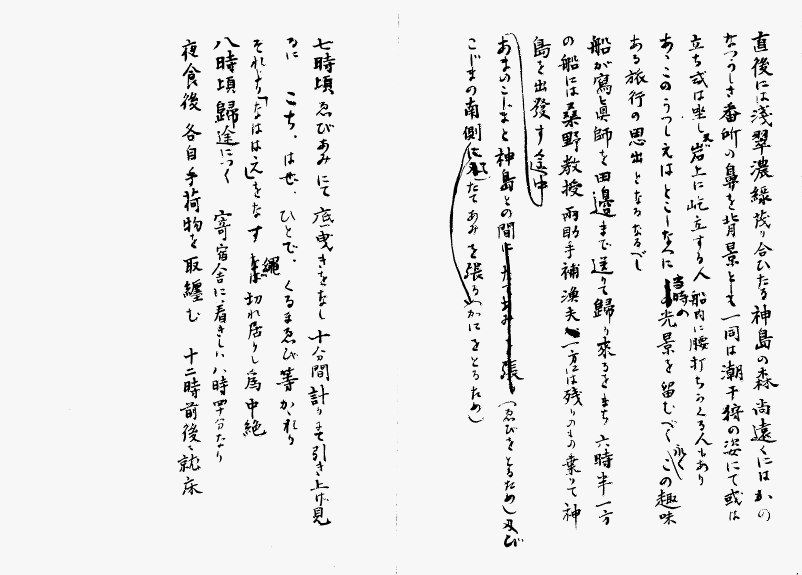 直後には浅翠濃緑茂り合ひたる神島の森尚遠くにはかの
なつかしき番所の鼻を背景として一同は潮干狩の姿にて或は
立ち或は坐し又岩上に屹立する人船内に腰打ちらくる人もあり
あゝこのうつしえはとこしなへに当時の光景を留むべく永くこの趣味
ある旅行の思出となるなるべし
船が寫眞師を田邊まで送りて歸り來るをまち六時半一方
の船には桑野教授両助手補漁夫一方には残りのもの乗りて神
島を出發す途中
あまのこじまと神島との間にたてあみを張(ゑびをとるため)及び
こじまの南側にたてあみを張る(かにをとるため)
七時頃ゑびあみにて底曳きをなし十分間計りにて引き上げ見
るに こち、はぜ、ひとで、くるまゑび等かゝれり
それより「なはは え」をなす 縄切れ居りし為中絶
八時頃歸途につく 寄宿舎に着きしハ八時四十分なり
夜食後各自手荷物を取纏む 十二時前後就床